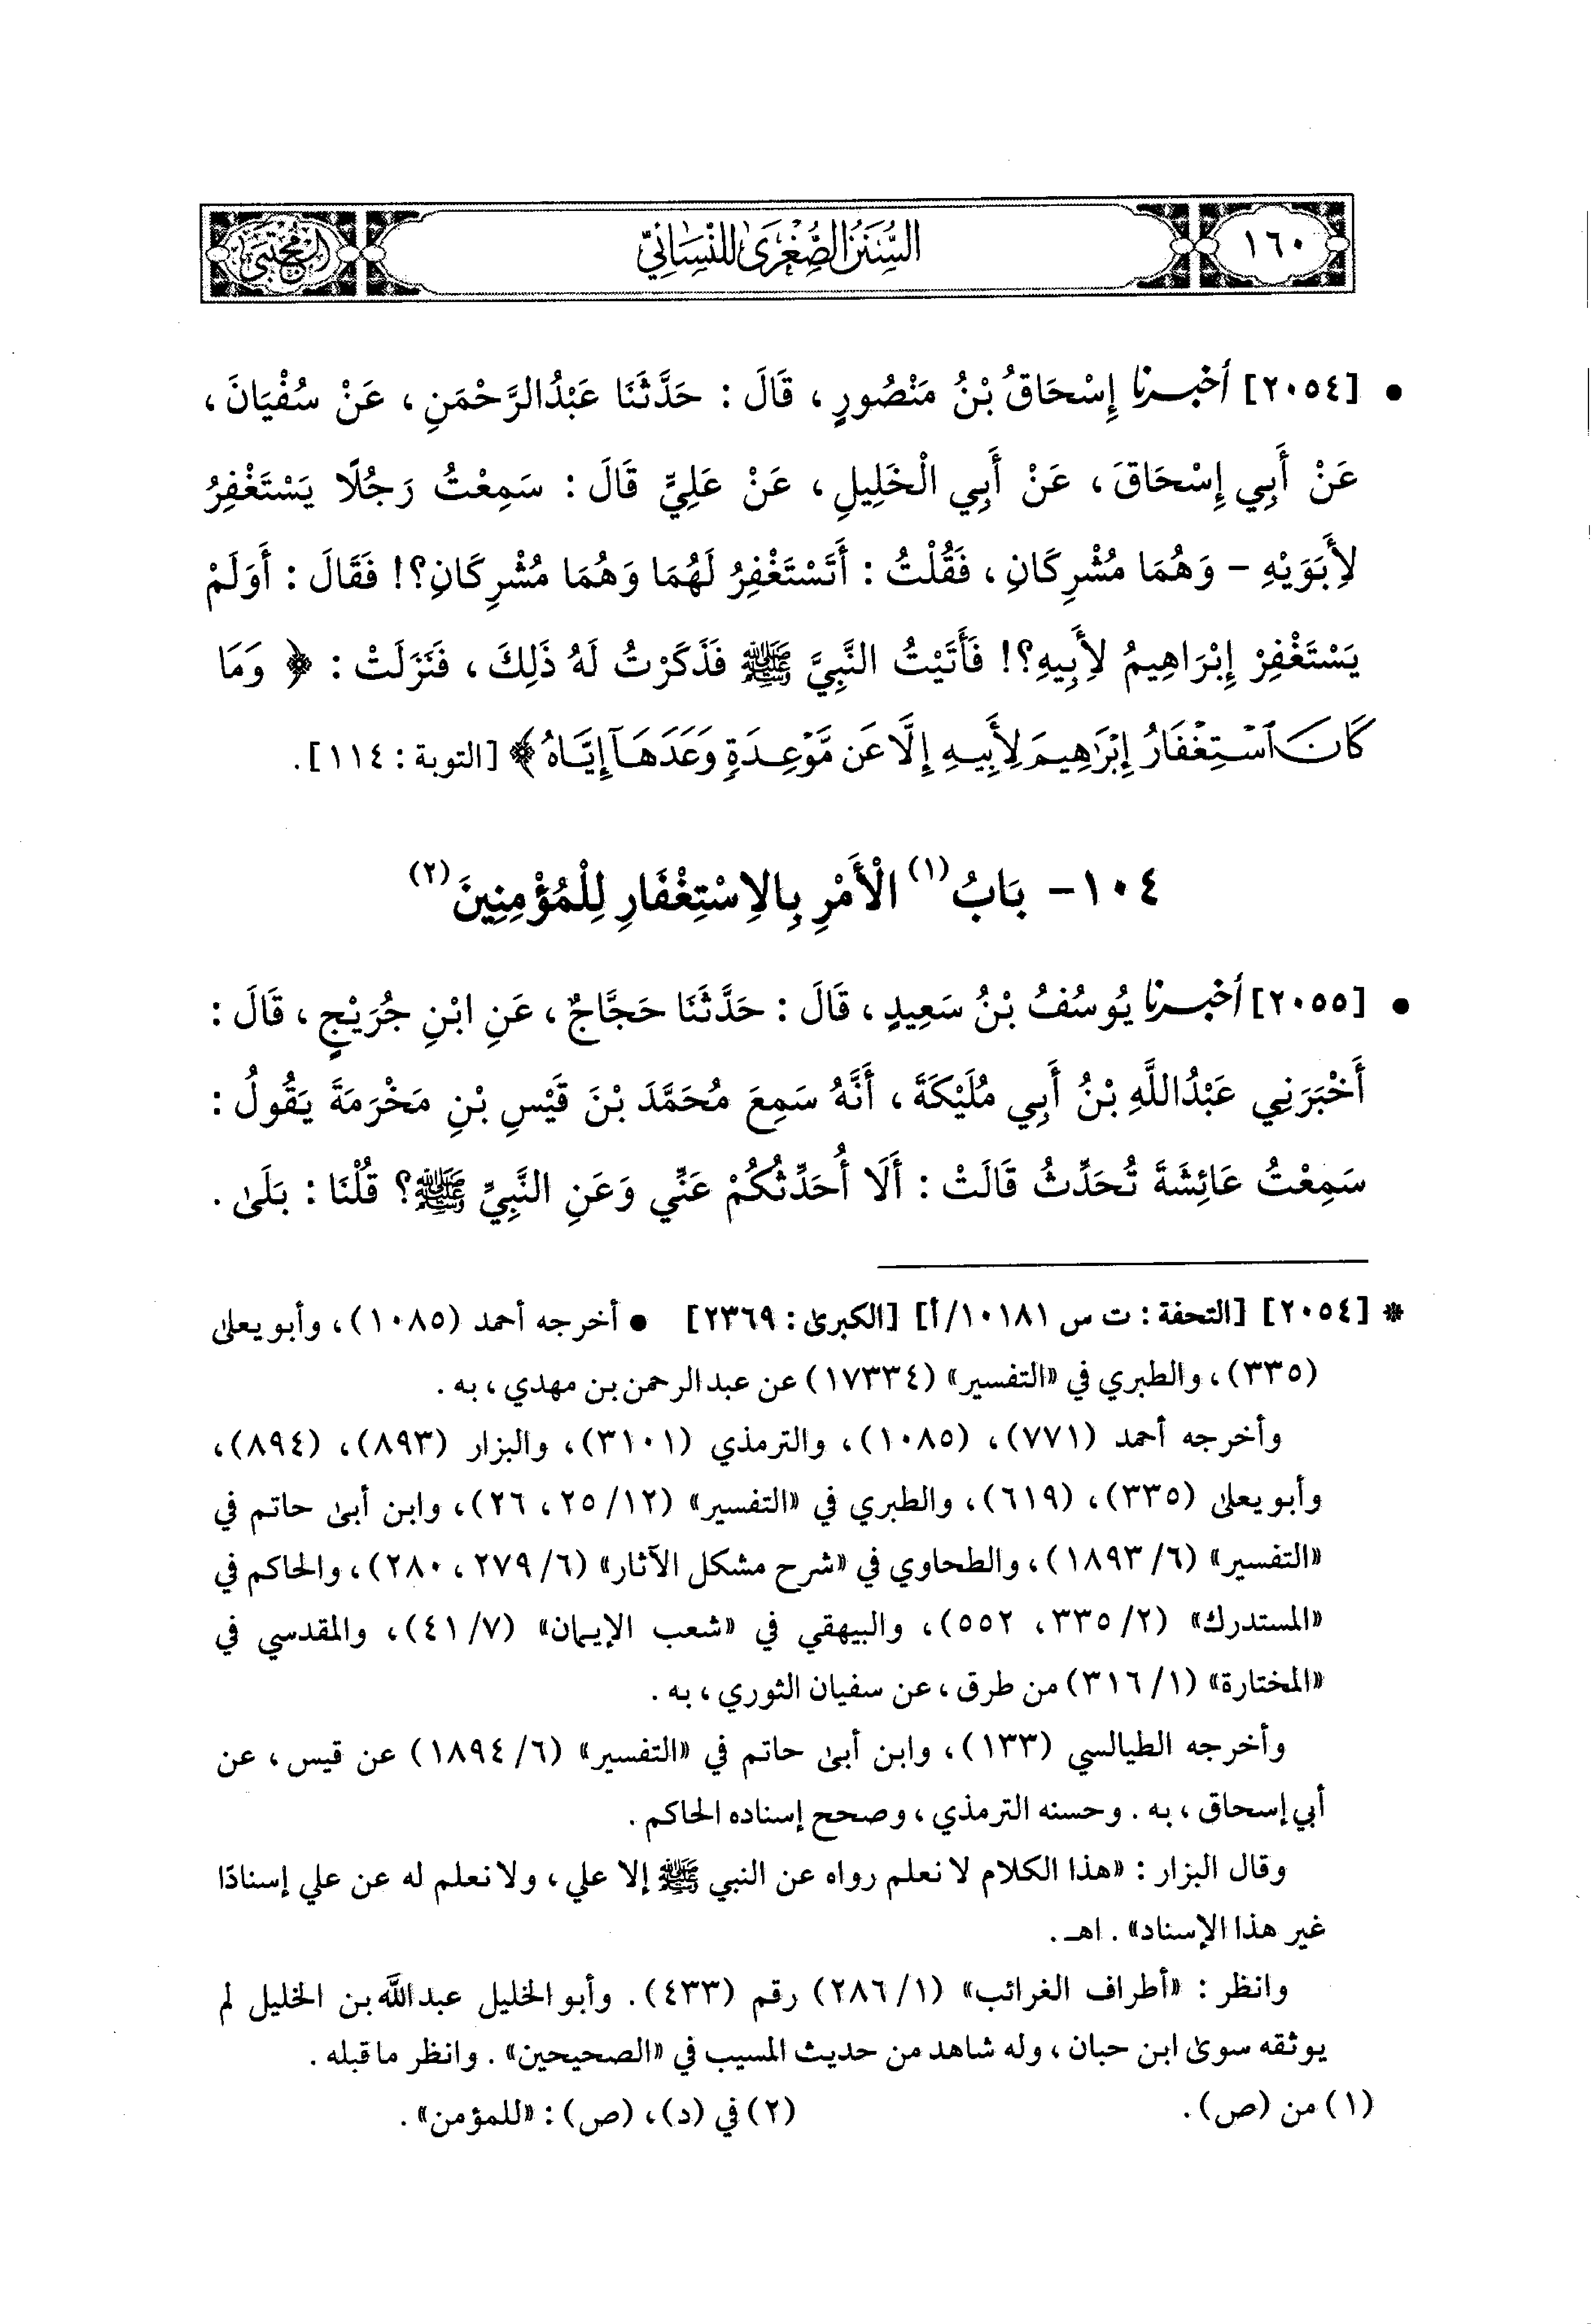 ١٦٠
السُّنَنُ الصُّغْرَىٰ لِلنَّسَائِيِّ
المجتبى
• [٢٠٥٤] أخبرنا إِسْحَاقُ بْنُ مَنْصُورٍ، قَالَ : حَدَّثَنَا عَبْدُالرَّحْمَنِ، عَنْ سُفْيَانَ،
عَنْ أَبِي إِسْحَاقَ، عَنْ أَبِي الْخَلِيلِ، عَنْ عَلِيٍّ قَالَ : سَمِعْتُ رَجُلًا يَسْتَغْفِرُ
لِأَبَوَيْهِ - وَهُمَا مُشْرِكَانِ، فَقُلْتُ : أَتَسْتَغْفِرُ لَهُمَا وَهُمَا مُشْرِكَانِ؟! فَقَالَ : أَوَلَمْ
يَسْتَغْفِرْ إِبْرَاهِيمُ لِأَبِيهِ؟! فَأَتَيْتُ النَّبِيَّ ﷺ فَذَكَرْتُ لَهُ ذَلِكَ، فَنَزَلَتْ : ﴿ وَمَا
كَانَ ٱسْتِغْفَارُ إِبْرَٰهِيمَ لِأَبِيهِ إِلَّا عَن مَّوْعِدَةٍ وَعَدَهَآ إِيَّاهُ﴾ [التوبة : ١١٤].
١٠٤- بَابُ (١) الْأَمْرِ بِالِاسْتِغْفَارِ لِلْمُؤْمِنِينَ (٢)
• [٢٠٥٥] أخبرنا يُوسُفُ بْنُ سَعِيدٍ، قَالَ : حَدَّثَنَا حَجَّاجٌ، عَنِ ابْنِ جُرَيْجٍ، قَالَ :
أَخْبَرَنِي عَبْدُاللَّهِ بْنُ أَبِي مُلَيْكَةَ، أَنَّهُ سَمِعَ مُحَمَّدَ بْنَ قَيْسِ بْنِ مَخْرَمَةَ يَقُولُ :
سَمِعْتُ عَائِشَةَ تُحَدِّثُ قَالَتْ : أَلَا أُحَدِّثُكُمْ عَنِّي وَعَنِ النَّبِيِّ ﷺ؟ قُلْنَا : بَلَىٰ .
* [٢٠٥٤] [التحفة : ت س ١٠١٨١/أ] [الكبرىٰ : ٢٣٦٩] • أخرجه أحمد (١٠٨٥)، وأبو يعلىٰ
(٣٣٥)، والطبري في «التفسير» (١٧٣٣٤) عن عبد الرحمن بن مهدي، به .
وأخرجه أحمد (٧٧١)، (١٠٨٥)، والترمذي (٣١٠١)، والبزار (٨٩٣)، (٨٩٤)،
وأبو يعلىٰ (٣٣٥)، (٦١٩)، والطبري في «التفسير» (١٢/ ٢٥، ٢٦)، وابن أبىٰ حاتم في
«التفسير» (٦/ ١٨٩٣)، والطحاوي في «شرح مشكل الآثار» (٦/ ٢٧٩، ٢٨٠)، والحاكم في
«المستدرك» (٢/ ٣٣٥، ٥٥٢)، والبيهقي في «شعب الإيمان» (٧/ ٤١)، والمقدسي في
«المختارة» (١/ ٣١٦) من طرق، عن سفيان الثوري، به .
وأخرجه الطيالسي (١٣٣)، وابن أبىٰ حاتم في «التفسير» (٦/ ١٨٩٤) عن قيس، عن
أبي إسحاق، به . وحسنه الترمذي، وصحح إسناده الحاكم .
وقال البزار : «هذا الكلام لا نعلم رواه عن النبي ﷺ إلا علي، ولا نعلم له عن علي إسنادًا
غير هذا الإسناد» . اهـ .
وانظر : «أطراف الغرائب» (١/ ٢٨٦) رقم (٤٣٣). وأبو الخليل عبد اللَّه بن الخليل لم
يوثقه سوىٰ ابن حبان، وله شاهد من حديث المسيب في «الصحيحين» . وانظر ما قبله .
(١) من (ص) . (٢) في (د)، (ص) : «للمؤمن» .